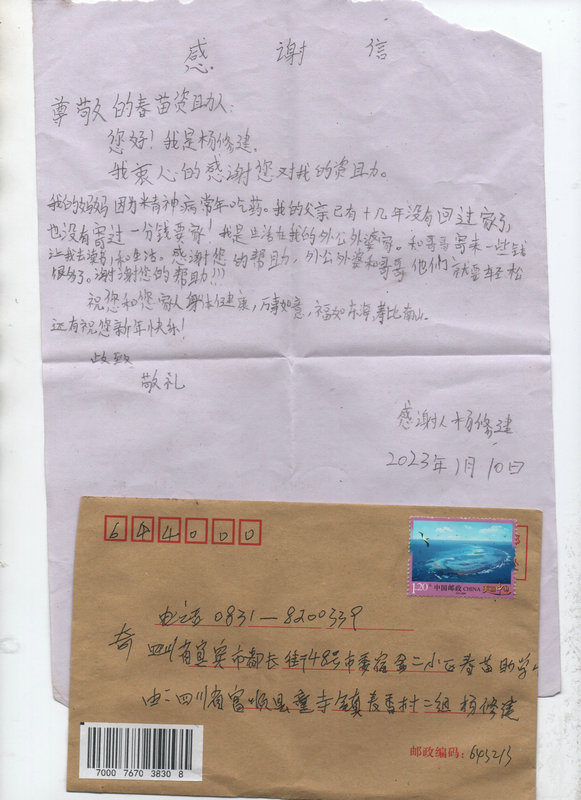 感谢信
尊敬的春苗资助人:
您好!我是杨修建,
我衷心的感谢您对我的资助。
我的妈妈因为精神病常年吃药。我的父亲已有十几年没有回过家了,
也没有寄过一分钱回家!我是生活在我的外公外婆家。和哥哥寄来一些钱
让我去读书和生活。感谢您的帮助,外公外婆和哥哥他们就要轻松
很多了。谢谢您的帮助!!!
祝您和您家人身体健康,万事如意,福如东海,寿比南山。
还有祝您新年快乐!
此致
敬礼
感谢人杨修建
2023年1月10日
644000
1.20元
中国邮政 CHINA
电话0831—8200339
寄 四川省宜宾市都长街48号市委宿舍二小区春苗助学
由:四川省富顺县童寺镇 村二组 杨修建
邮政编码:643213
7000 7670 3830 8